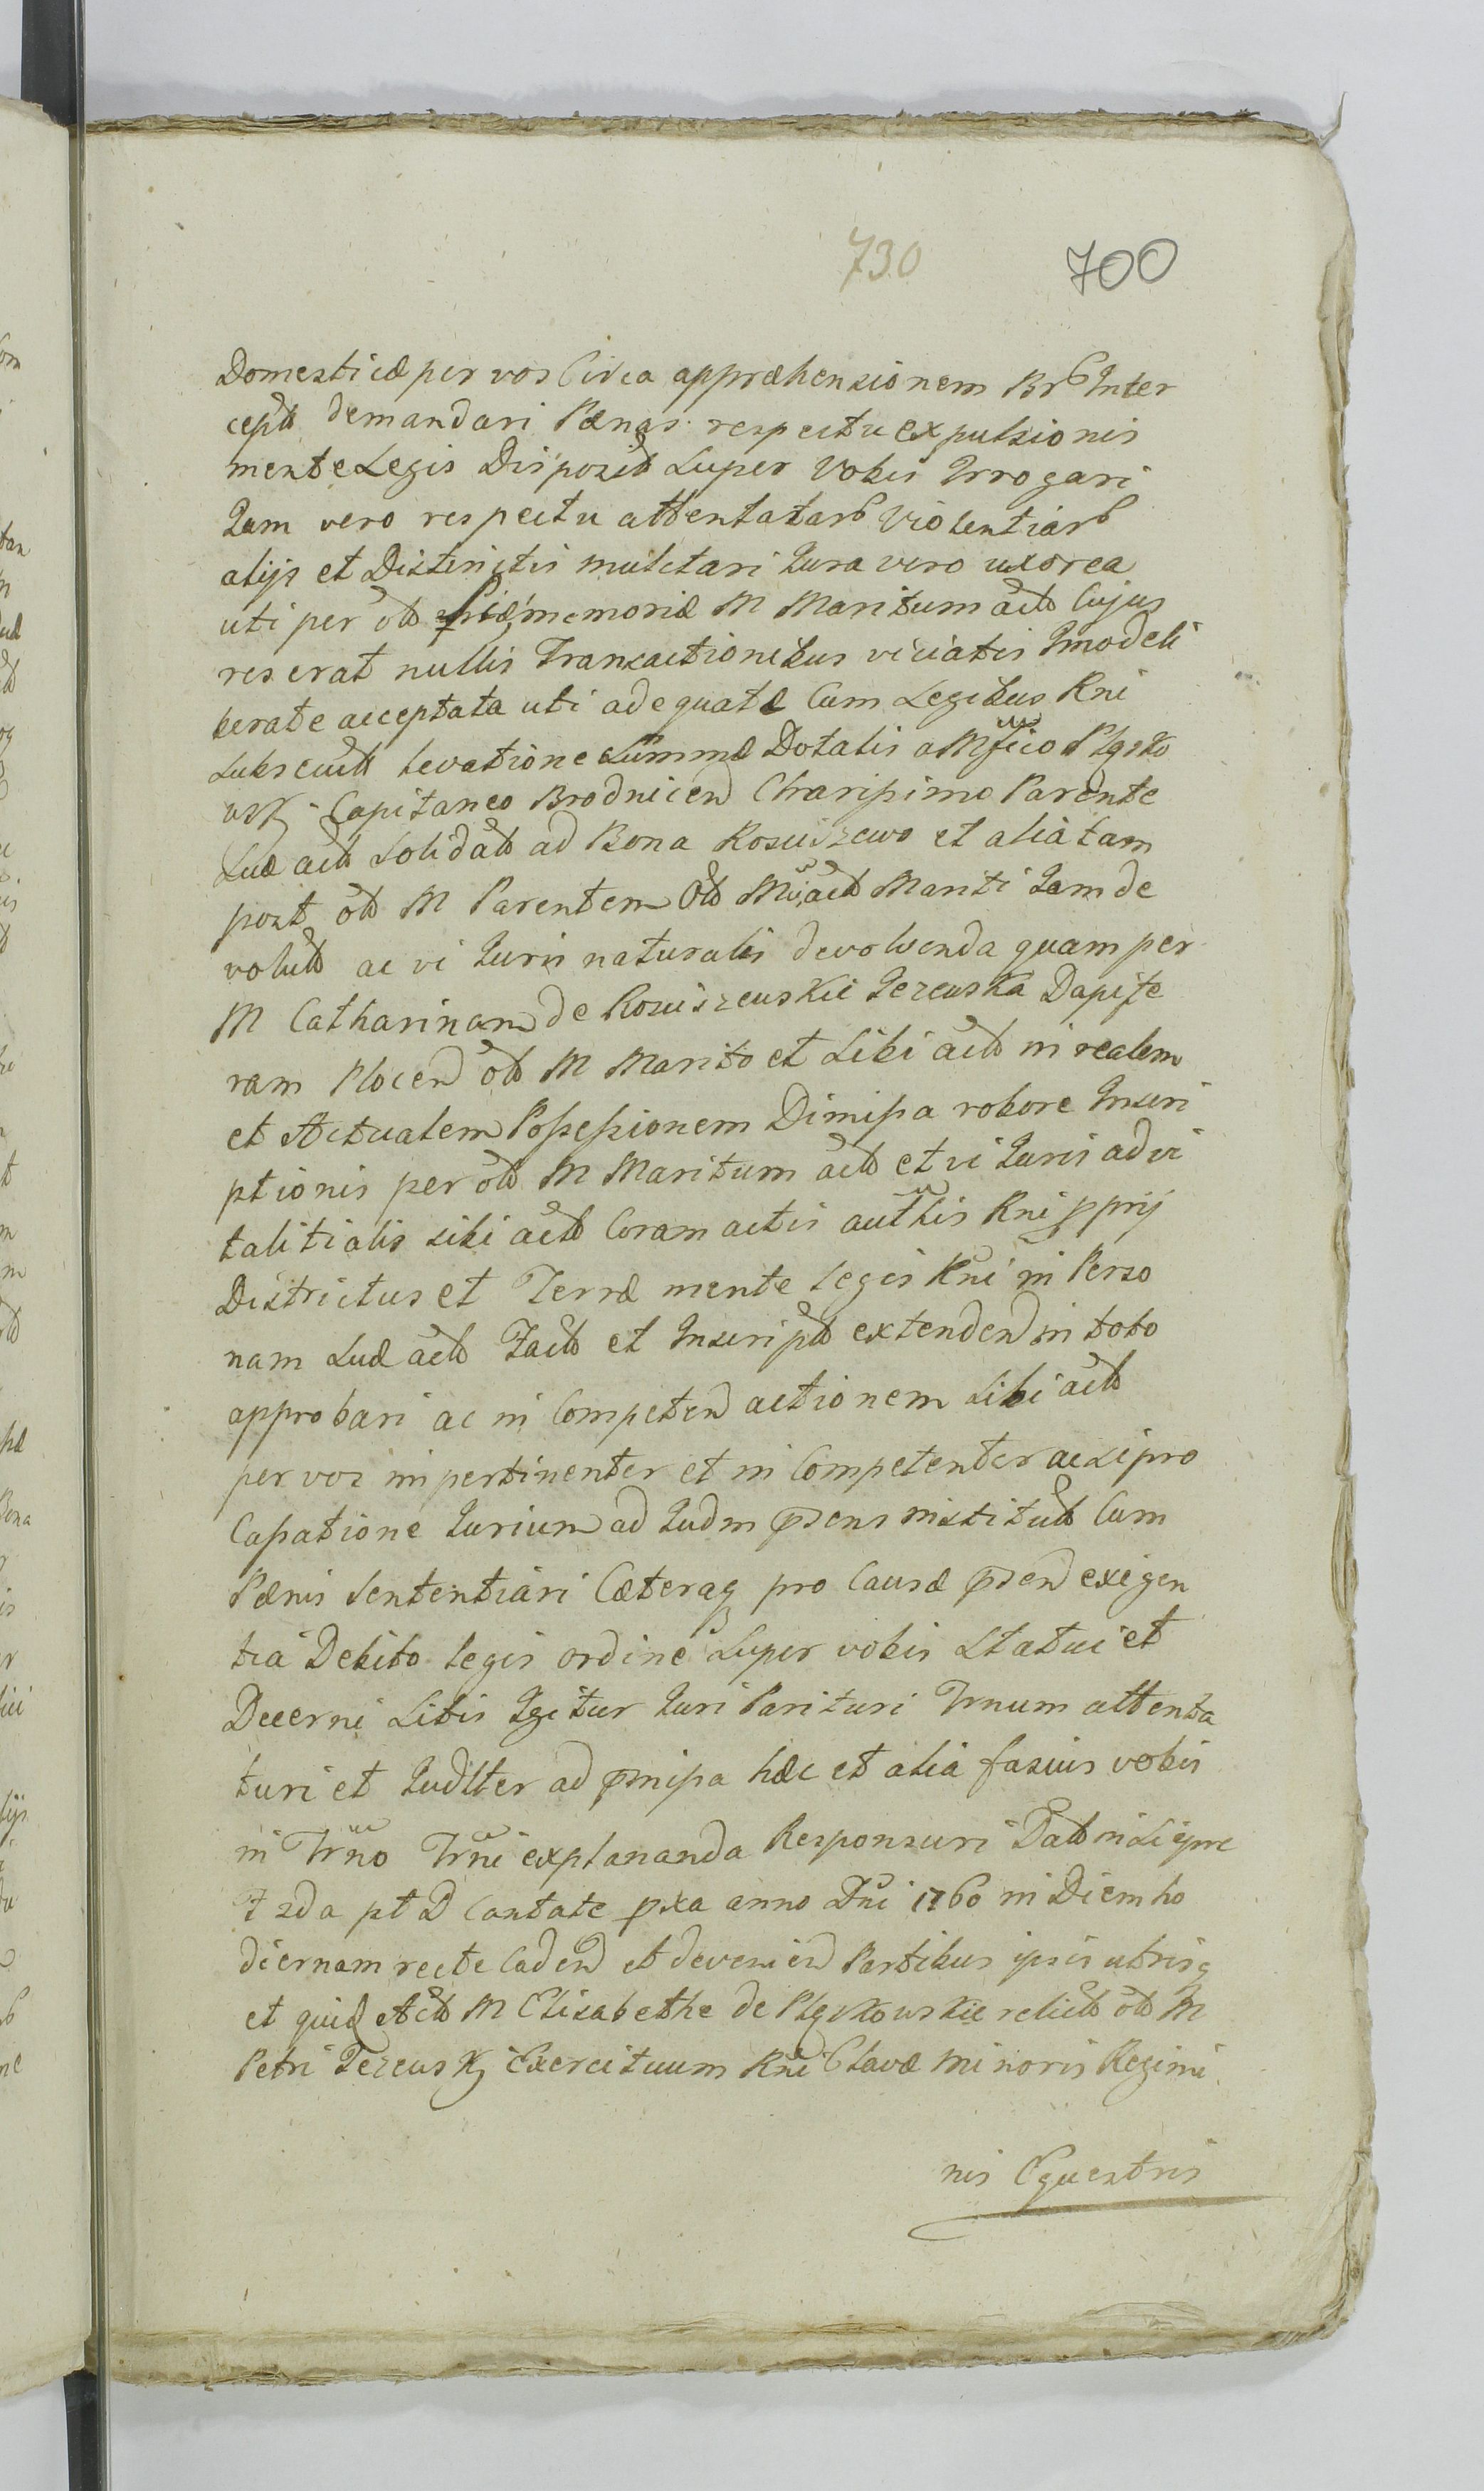 730 700
Domesticæ per vos Circa appræhensionem Br Inter
cept demandari Pænas respectu expulsionis
mente Legis Disposit Super Vobis Irrogari
Iam vero respectu attentatar Violentiar
alijs et Districtis mulctari Iura vero uxorea
uti per ol piæ memoriæ M Maritum act Cujus
res erat nullis Transactionibus viciatis Imo deli
berate acceptata uti adequatæ Cum Legibus Rni
Subsecut levatione Summæ Dotalis a Mfico Plqsko
wsk Capitaneo Brodnicen Charissimo Parente
Suæ act Solidat ad Bona Rosciszewo et alia tam
post ol M Parentem Ol Mci act Mariti Iam de
volut ac vi Iuris naturalis devolvenda quam per
M Catharinam de Rosciszewskie Jezewska Dapife
ram Plocen ol M Marito et Sibi act in realem
et Actualem Possessionem Dimissa robore Inscri
ptionis per ol M Maritum act et vi Iuris advi
talitialis sibi act Coram actis authis Rni pprij
Districtus et Terræ mente legis Rni in Perso
nam Suæ act Fact et Inscript extenden in toto
approbari ac in Competen actionem Sibi act
per vos impertinenter et in Competenter ac si pro
Cassatione Iurium ad Iudm psens institut Cum
Pænis Sententiari Cæteraq pro Causæ psen exigen
tia Debito legis ordine Super vobis Statui et
Decerni Sitis Igitur Iuri Parituri Trnum attenta
turi et Iudlter ad pmissa hæc et alia fusius vobis
in Trno Trni explananda Responsuri Dat in Sierpc
F 2da pt D Cantate pxa anno Dni 1760 in Diem ho
diernam recte Caden et devenien Partibus ipsis utrisq
et quid Act M Elisabethe de Plqskowskie relict ol M
Petri Jezewskj Exercituum Rni Clavæ minoris Regimi
nis Equestris